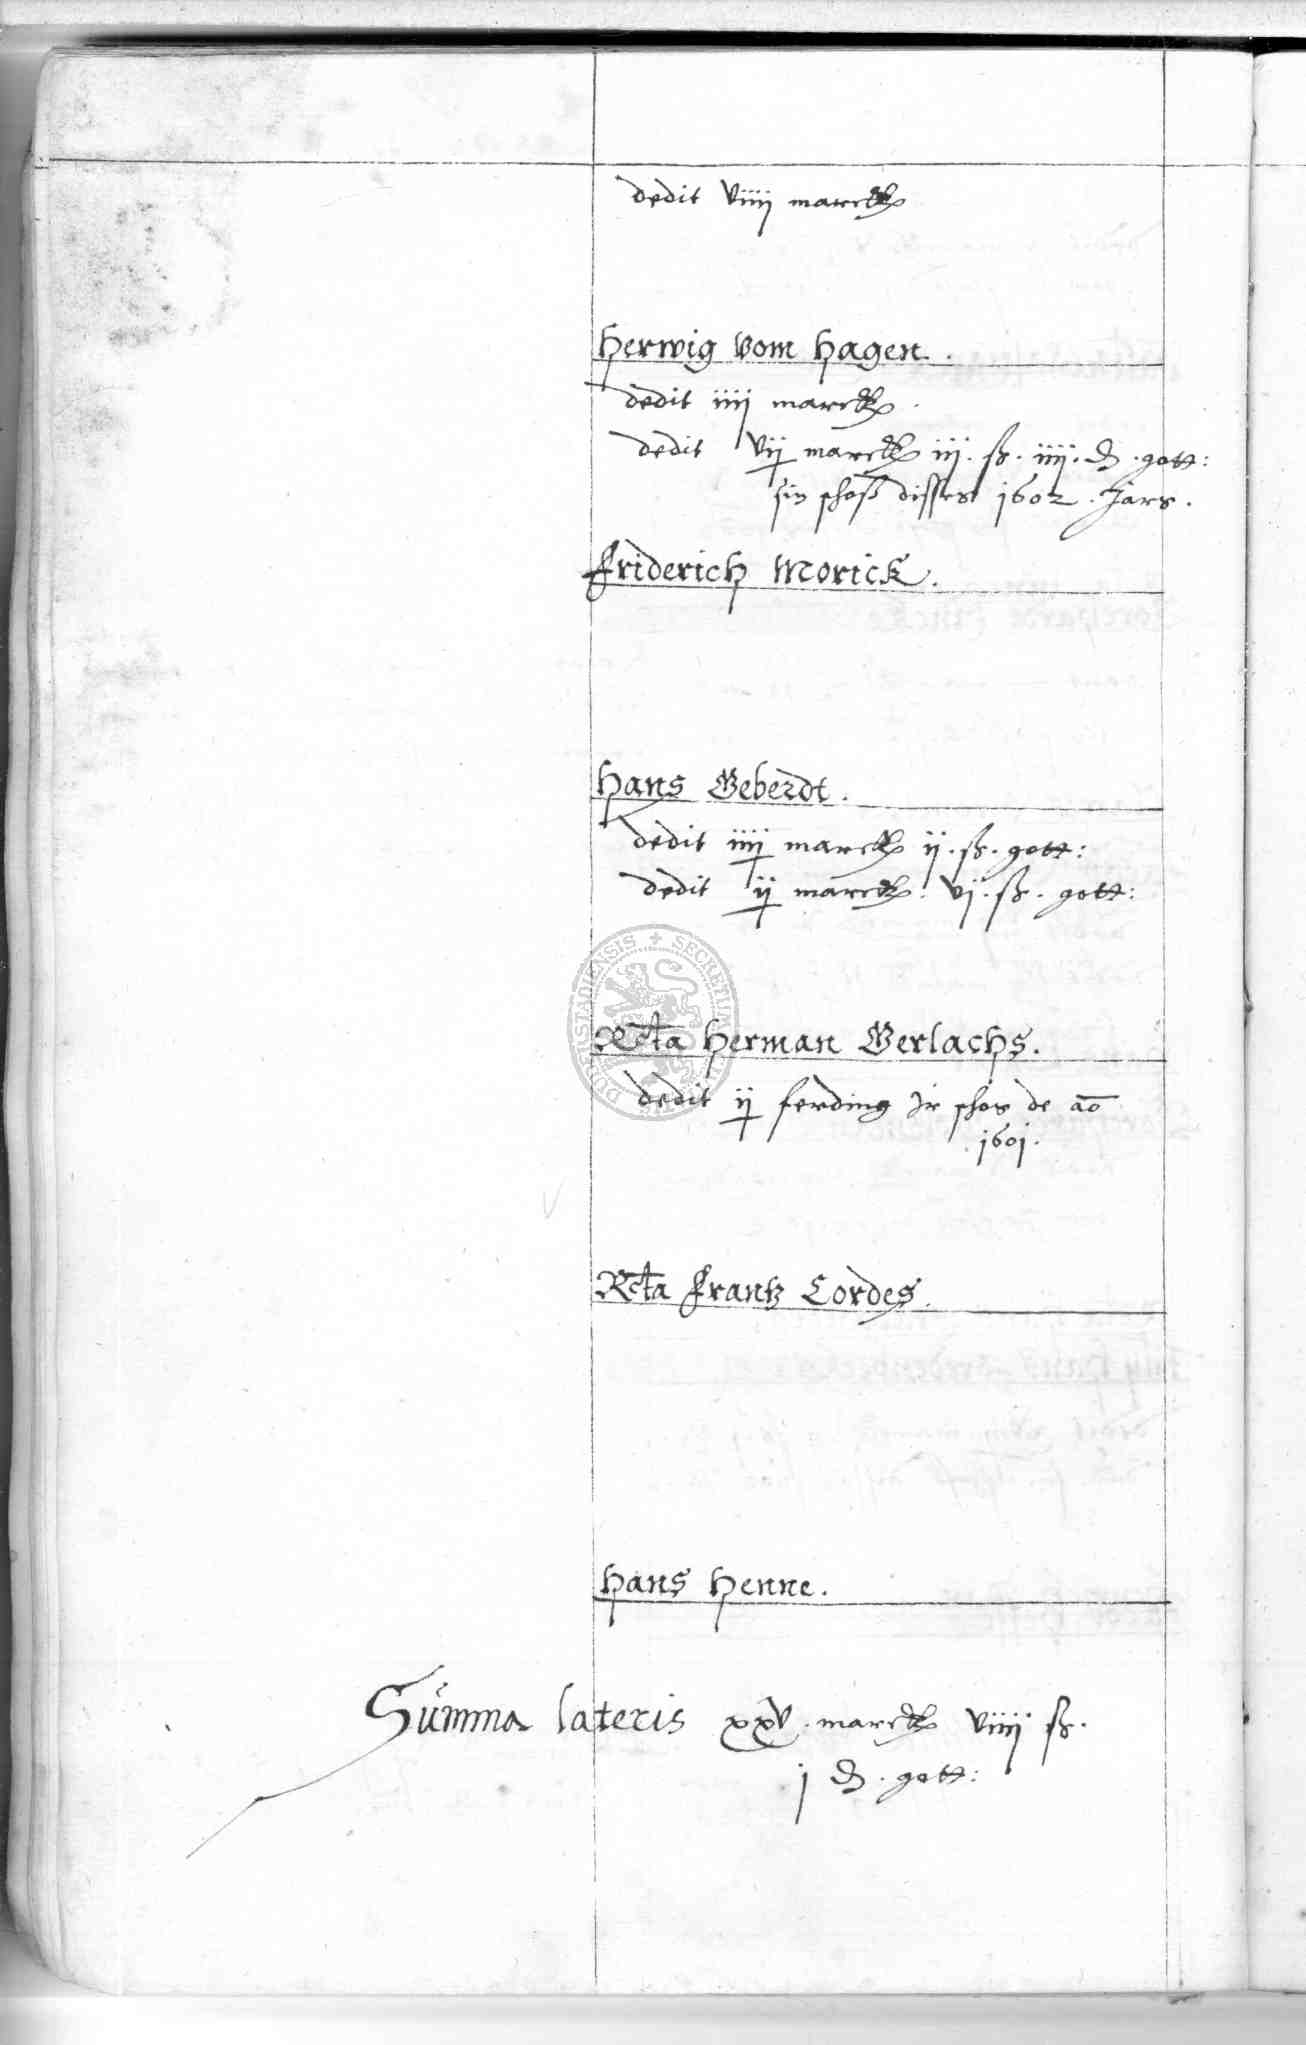 dedit viiij marck
Herwig vom Hagen.
dedit iiij marck.
dedit vij marck iij. ß. iiij. ₰. gott:
sin schoß disses 1602. Jars.
Friderich Morick.
Hans Geberdt.
dedit iiij marck ij. ß. gott:
dedit ij marck. vj. ß. gott:
Rcta Herman Gerlachs.
dedit ij ferding Jr schos de ao
1601.
Rcta Frantz Cordes.
Hans Henne.
Summa lateris xxv. marck viiij ß.
j ₰. gott: